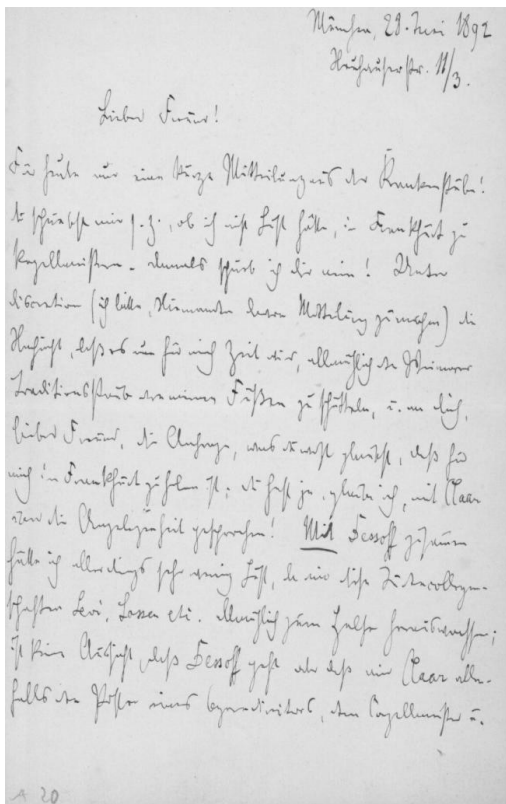 München, 29. Mai 1892
Neuhauserstr. 11/3.
Lieber Freund!
Für heute nur eine kurze Mitteilung aus der Krankenstube!
Du schriebst mir s. Z., ob ich nicht Lust hätte, in Frankfurt zu
kapellmeistern. Damals schrieb ich dir nein! Unter
discretion (ich bitte, Niemandem davon Mitteilung zu machen) die
Nachricht, daß es nun für mich Zeit wird, allmählich den Weimarer
Traditionsstaub von meinen Füßen zu schütteln, u. an dich,
lieber Freund, die Anfrage, was du glaubst, daß für
mich in Frankfurt zu holen ist; du hast ja, glaube ich, mit Claar
über die Angelegenheit gesprochen! Mit Dessoff zusammen
hätte ich allerdings sehr wenig Lust, da mir diese Judencollegen-
schaften Levi, Lassen etc. allmählich zum Halse herauswachsen;
ist keine Aussicht, daß Dessoff geht oder daß mir Claar allen-
falls den Posten eines Operndirectors, dem Capellmeister u.
A 20